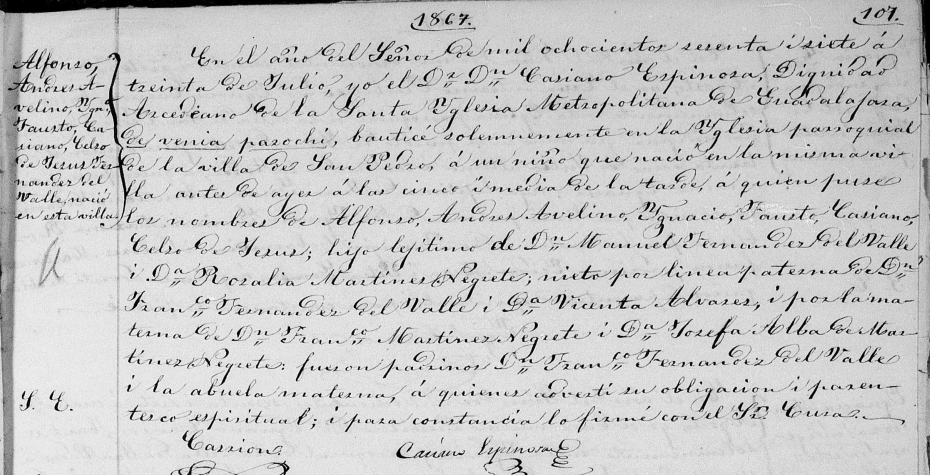 1867.
107.
Alfonso,
Andres A-
velino, Ygn.o
Fausto, Ca-
siano, Celso
de Jesus Fer-
nandez del
Valle, nació
en esta villa.
En el año del Señor de mil ochocientos sesenta i siete á
treinta de Julio, yo el Dr. Dn. Casiano Espinosa, Dignidad
Arcediano de la Santa Yglesia Metropolitana de Guadalajara,
de venia parochi, bauticé solemnemente en la Yglesia parroquial
de la villa de San Pedro, á un niño que nació en la misma vi-
lla antes de ayer á las cinco i media de la tarde, á quien puse
los nombres de Alfonso, Andres Avelino, Ygnacio, Fausto, Casiano,
Celso de Jesus; hijo lejitimo de Dn. Manuel Fernandez del Valle
i Da. Rosalia Martinez Negrete; nieto por linea paterna de Dn.
Fran.co Fernandez del Valle i Da. Vicenta Alvarez, i por la ma-
terna de Dn. Fran.co Martinez Negrete i Da. Josefa Alba de Mar-
tinez Negrete: fueron padrinos Dn. Fran.co Fernandez del Valle
i la abuela materna, á quienes advertí su obligacion i paren-
tesco espiritual; i para constancia lo firmé con el Sr. Cura.
S. E.
Casiano Espinosa